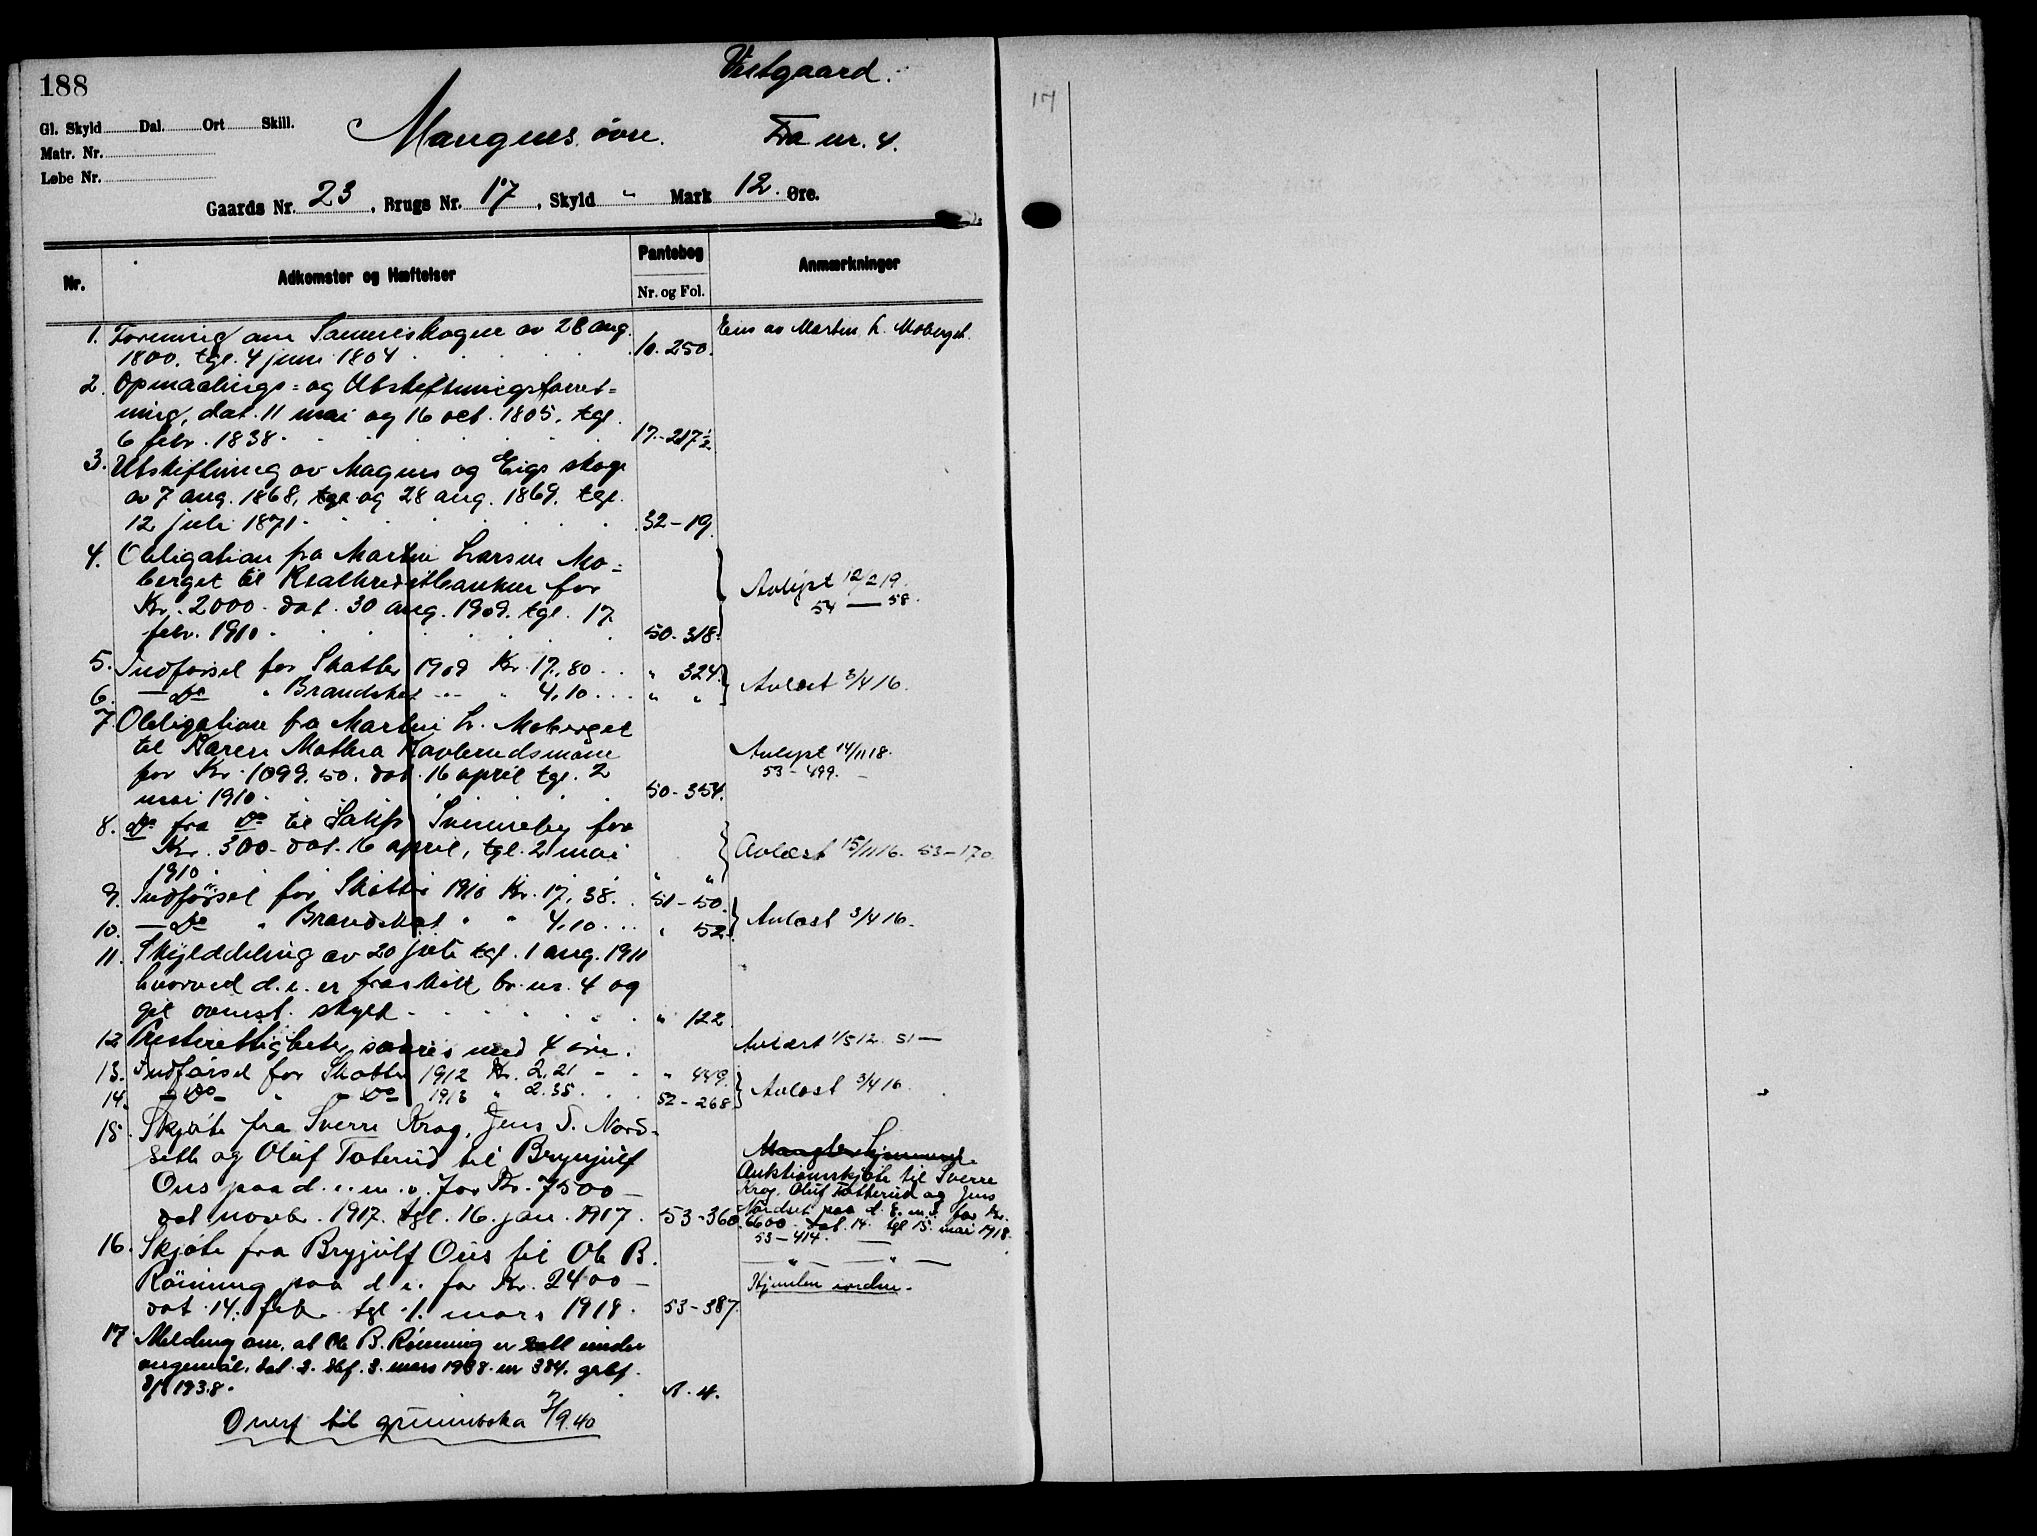 188
Vestgaard.
Gl. Skyld Dal. Ort Skill.
Matr. Nr.
Løbe Nr.
Mangnes øvre. Fra nr. 4.
Gaards Nr. 23, Brugs Nr. 17, Skyld " Mark 12. Øre.
Nr. Adkomster og Hæftelser Pantebog Nr. og Fol. Anmærkninger
1. Forening om Sameieskogene av 28 aug.
1800. tgl. 4 juni 1804 10. 250. Eies av Martin L. Moberget.
2. Opmaalings- og Utskiftningsforret-
ning, dat. 11 mai og 16 oct. 1805. tgl.
6 febr. 1838. 17.-217½
3. Utskiftning av Magnes og Eigs skoge
av 7 aug. 1868, og 28 aug. 1869. tgl.
12 juli 1871. 32-19
4. Obligation fra Martin Larsen Mo-
berget til Realkreditbanken for
Kr. 2000. dat. 30 aug. 1909. tgl. 17
febr. 1910. 50-318. Avlyst 12/2 19. 54 — 58.
5. Indførsel for Skatter 1909 Kr. 17.80 " 324.
6. — Do " Brandskat " 4.10 " " Avlæst 3/4 16.
7. Obligation fra Martin L. Moberget
til Karen Mathea
for Kr. 1099.50. dat. 16 april tgl. 2
mai 1910. 50-354. Avlyst 14/11 18. 53-499.
8. Do fra Do til Svenneby for
Kr. 300- dat. 16 april, tgl. 2 mai
1910. " " Avlæst 15/11 16. 53-170.
9. Indførsel for Skatter 1910 Kr. 17.38. 51-50.
10. — Do " Brandskat " " 4.10 " 52. Avlæst 3/4 16.
11. Skylddeling av 20 juli tgl. 1 aug. 1911
hvorved d. e. er fraskilt br. nr. 4 og
git ovenst. skyld " 122
12. Presterettigheter, svares med 4 øre. Avlæst 1/5 12. 51—
13. Indførsel for Skatter 1912 Kr. 2.21 - - " 449.
14. - Do - " Do 1913 " 2.35. 52-268. Avlæst 3/4 16.
15. Skjøte fra Sverre Krog, Jens S. Nord-
seth og Oluf Toterud til Brynjulf
Ous paa d. e. m. v. for Kr. 7500 —
dat novbr. 1917. tgl. 16. jan. 1917. 53-360.
Mangler hjemmel.
Auktionsskjøte til Sverre
Krog, Oluf Totterud og Jens
Nordset paa d. e. m. v. for Kr.
6600. dat. 14. tgl 15. mai 1918.
53-414.
16. Skjøte fra Bryjulf Ous til Ole B.
Rönning paa d. e. for Kr. 2400 —
dat. 14. feb. tgl. 1. mars 1918. 53-387.
— " — " —
Hjemlen iorden.
17 Melding om, at Ole B. Rönning er satt under
vergemål, dat. 2. dbf. 3. mars 1938. nr 384.
1938. A. 4.
Overf til grunnboka 2/9.40
17